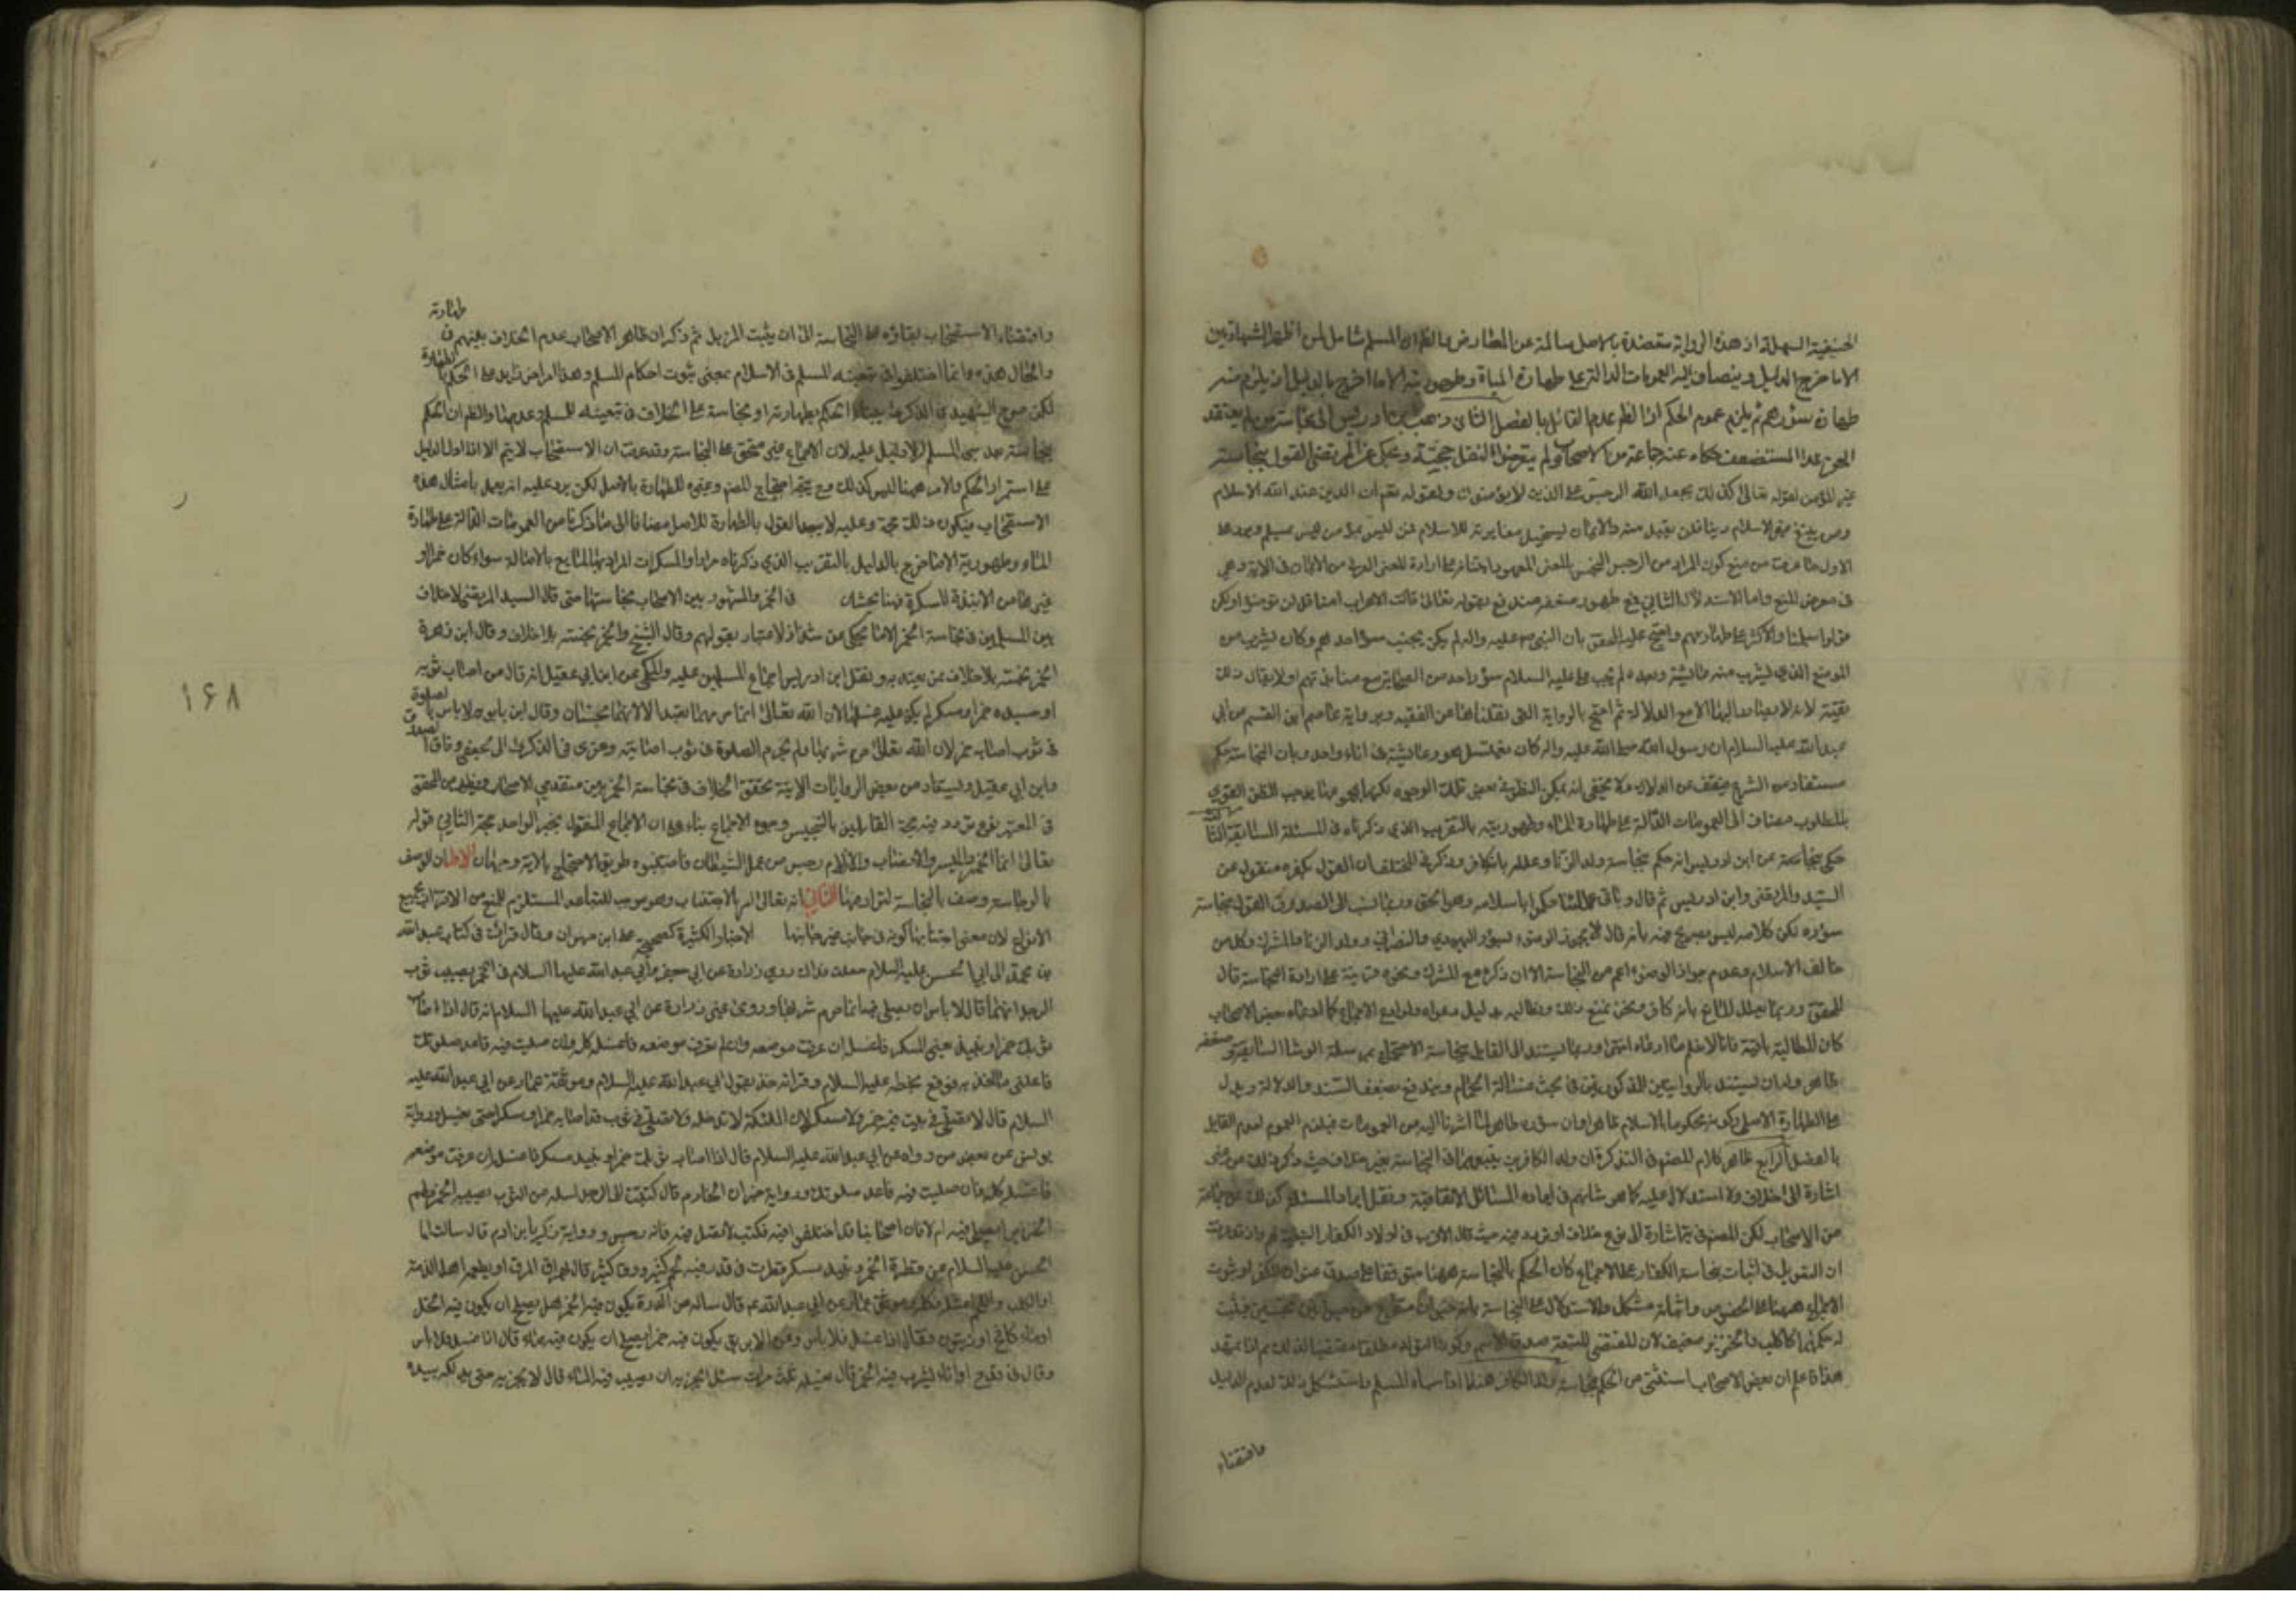 الحنيفية السهلة اذ هذه الرواية معتضدة بالاصل سالمة عن المعارض مع الظاهر ان المسلم شامل لمن اظهر الشهادتين
الا ما خرج بالدليل وينضاف اليه العمومات الدالة على طهارة المياه وطهوريته الا ما اخرج بالدليل اذ يلزم منه
طهارة سؤرهم ثم يلزم عموم الحكم اذ الظاهر عدم القائل بالفصل الثاني ذهب ابن ادريس الى نجاسة من لم يعتقد
الحق عدا المستضعف حكاه عنه جماعة من الاصحاب ولم يتعرضوا لنقل حجته وحكى عن المرتضى القول بنجاسة
غير المؤمن لقوله تعالى كذلك يجعل الله الرجس على الذين لا يؤمنون ولقوله تعالى ان الدين عند الله الاسلام
ومن يبتغ غير الاسلام دينا فلن يقبل منه والايمان يستحيل مغايرته للاسلام فمن ليس بمؤمن ليس بمسلم ويرد على
الاول ما عرفت من منع كون المراد من الرجس النجس بالمعنى المعهود
في معرض المنع واما الاستدلال الثاني فمع ظهور ضعفه مندفع بقوله تعالى قالت الاعراب امنا قل لن تؤمنوا ولكن
قولوا اسلمنا والاكثر على طهارتهم واحتج عليه المحقق بان النبي صلى الله عليه واله لم يكن يجتنب سؤر احدهم وكان يشرب من
الموضع الذي تشرب منه عائشة وبعده لم يجتنب علي عليه السلام سؤر احد من الصحابة مع مباينتهم له ولا يقال ذلك
تقية لانه لا يصار اليها الا مع الدلالة ثم احتج بالرواية التي نقلناها عن الفقيه وبرواية عاصم ابن القسم عن ابي
عبد الله عليه السلام ان رسول الله صلى الله عليه واله كان يغتسل هو وعايشة في اناء واحد وبان النجاسة حكم
مستفاد من الشرع فيقف على الدلالة ولا يخفى انه يمكن النظر في بعض تلك الوجوه لكن فيها ما يوجب الظن القوي
بالمطلوب مضافا الى العمومات الدالة على طهارة الماء وطهوريته بالتقريب الذي ذكرناه في المسئلة السابقة الثالث
حكى جماعة عن ابن ادريس انه حكم بنجاسة ولد الزنا وعلله بانه كافر وذكر في المختلف ان القول بكفره منقول عن
السيد المرتضى وابن ادريس ثم قال وباقي علمائنا حكموا باسلامه وهو الحق وربما نسب الى الصدوق القول بنجاسة
سؤره لكن كلامه ليس بصريح فيه بانه قال لا يجوز الوضوء بسؤر اليهودي والنصراني وولد الزنا والمشرك وكل من
خالف الاسلام وعدم جواز الوضوء اعم من النجاسة الا ان ذكره مع المشرك ونحوه قرينة على ارادة النجاسة قال
المحقق وربما يعلل المانع بانه كافر ونحن نمنع ذلك ونطالبه بدليل دعواه ولو ادعى الاجماع كما ادعاه بعض الاصحاب
كان المطالبة باقية فانا لا نعلم ما ادعاه انتهى وربما يستند الى القائل بنجاسة الاحتجاج بمرسلة الوشا السابقة وضعفه
ظاهر ولو ان يستند بالروايتين المذكورتين في بحث غسالة الحمام ويندفع بضعف السند والدلالة ويدل
على الطهارة الاصل وكونه محكوما بالاسلام ظاهرا
بالفصل الرابع ظاهر كلام المصنف في التذكرة ان ولد الكافرين يتبعهما في النجاسة بغير خلاف حيث ذكر ذلك من غير
اشارة الى خلاف ولا استدلال عليه كما هو شانهم في ايراد المسائل الاتفاقية ونقل ايراد المسئلة كذلك عن جماعة
من الاصحاب لكن المصنف في النهاية اشارة الى نوع خلاف او تردد فيه حيث قال الاقرب في اولاد الكفار التبعية لهم
ان التعويل في اثبات نجاسة الكفار على الاجماع كان الحكم بالنجاسة ههنا متوقفا على صدق عنوان الكفر او ثبوت
الاجماع ههنا على الخصوص واثباته مشكل والاستدلال على النجاسة بانه حيوان متفرع من حيوانين نجسين فيثبت
له حكمهما كالكلب والخنزير ضعيف لان المقتضي للتبعية صدق الاسم وكون التولد مطلقا مقتضيا لذلك
هذا واعلم ان بعض الاصحاب استثنى من الحكم بنجاسة ولد الكافر هنا ما اذا سباه المسلم واستشكل ذلك لعدم الدليل
واقتضاء
طهارة
واقتضاء الاستصحاب بقاؤه على النجاسة الى ان يثبت المزيل ثم ذكر ان ظاهر الاصحاب عدم الخلاف بينهم في
والحال هذه وانما اختلفوا في تبعيته للمسلم في الاسلام بمعنى ثبوت احكام المسلم وهذا امر اخر زايد على الحكم بالطهارة
لكن صرح الشهيد في الذكرى ببناء الحكم بطهارته او نجاسته على الخلاف في تبعيته للمسلم وعدمها والظاهر ان الحكم
بنجاسته بعد سبي المسلم له لا دليل عليه لان الاجماع غير متحقق على النجاسة وقد عرفت ان الاستصحاب لا يتم الا اذا دل الدليل
على استمرار الحكم والامر ههنا ليس كذلك
الاستصحاب فيكون ذلك حجة وعليه لا يبعد القول بالطهارة للاصل مضافا الى ما ذكرنا من العمومات الدالة على طهارة
الماء وطهوريته الا ما خرج بالدليل بالتقريب الذي ذكرناه مرارا والمسكرات المراد بها المايع بالاصالة سواء كان خمرا او
غيرها من الانبذة المسكرة فههنا بحثان في الخمر والمشهور بين الاصحاب نجاستها حتى قال السيد المرتضى لا خلاف
بين المسلمين في نجاسة الخمر الا ما يحكى عن شذاذ لا اعتبار بقولهم وقال الشيخ والخمر نجسة بلا خلاف وقال ابن زهرة
الخمر نجسة بلا خلاف ممن يعتد به ونقل ابن ادريس اجماع المسلمين عليه والمحكي عن ابن ابي عقيل انه قال من اصاب ثوبه
او جسده خمر او مسكر لم يكن عليه غسلهما لان الله تعالى انما حرمهما تعبدا لا لانهما نجسان وقال ابن بابويه لا باس بالصلوة
في ثوب اصابه خمر لان الله تعالى حرم شربها ولم يحرم الصلوة في ثوب اصابته وعزى في الذكرى الى الجعفي وفاق الصدوق
وابن ابي عقيل ويستفاد من بعض الروايات الاتية تحقق الخلاف في نجاسة الخمر بين متقدمي الاصحاب ويظهر من المحقق
في المعتبر نوع تردد فيه حجة القائلين بالتنجيس وجوه الاجماع بناء على ان الاجماع المنقول بخبر الواحد حجة الثاني قوله
تعالى انما الخمر والميسر والانصاب والازلام رجس من عمل الشيطان فاجتنبوه طريق الاحتجاج بالاية وجهان الاول ان الوصف
بالرجاسة وصف بالنجاسة لترادفهما الثاني انه تعالى امر بالاجتناب وهو موجب للتباعد المستلزم للمنع من الاقتراب بجميع
الانواع لان معنى اجتنابها كونه في جانب غير جانبها الاخبار الكثيرة كصحيحة علي ابن مهزيار وقال قرات في كتاب عبد الله
بن محمد الى ابي الحسن عليه السلام جعلت فداك روى زرارة عن ابي جعفر وابي عبد الله عليهما السلام في الخمر يصيب ثوب
الرجل انهما قالا لا باس ان يصلى فيه انما حرم شربها وروى غير زرارة عن ابي عبد الله عليه السلام انه قال اذا اصاب
ثوبك خمر او نبيذ يعني المسكر فاغسله ان عرفت موضعه وان لم تعرف موضعه فاغسله كله وان صليت فيه فاعد صلوتك
فاعلمني ما اخذ به فوقع بخطه عليه السلام وقراته خذ بقول ابي عبد الله عليه السلام وموثقة عمار عن ابي عبد الله عليه
السلام قال لا تصل في بيت فيه خمر ولا مسكر لان الملئكة لا تدخله ولا تصل في ثوب قد اصابه خمر او مسكر حتى يغسل ورواية
يونس عن بعض من رواه عن ابي عبد الله عليه السلام قال اذا اصاب ثوبك خمر او نبيذ مسكر فاغسله ان عرفت موضعه
فاغسله كله وان صليت فيه فاعد صلوتك ورواية خيران الخادم قال كتبت الى الرجل اسئله عن الثوب يصيبه الخمر ولحم
الخنزير ايصلى فيه ام لا فان اصحابنا قد اختلفوا فيه فكتب لا تصل فيه فانه رجس ورواية زكريا ابن ادم قال سالت ابا
الحسن عليه السلام عن قطرة الخمر ونبيذ مسكر قطرت في قدر فيه لحم كثير ومرق كثير قال يهراق المرق او يطعمه اهل الذمة
او الكلب واللحم اغسله وكله وموثقة عمار عن ابي عبد الله ع قال سالته عن الدن يكون فيه الخمر هل يصلح ان يكون فيه الخل
او ماء كامخ او زيتون فقال اذا غسل فلا باس وعن الابريق يكون فيه خمر ايصلح ان يكون فيه ماء قال اذا غسل فلا باس
وقال في قدح او اناء يشرب فيه الخمر قال تغسله ثلث مرات سئل ايجزيه ان يصب فيه الماء قال لا يجزيه حتى يدلكه بيده
۱۶۸